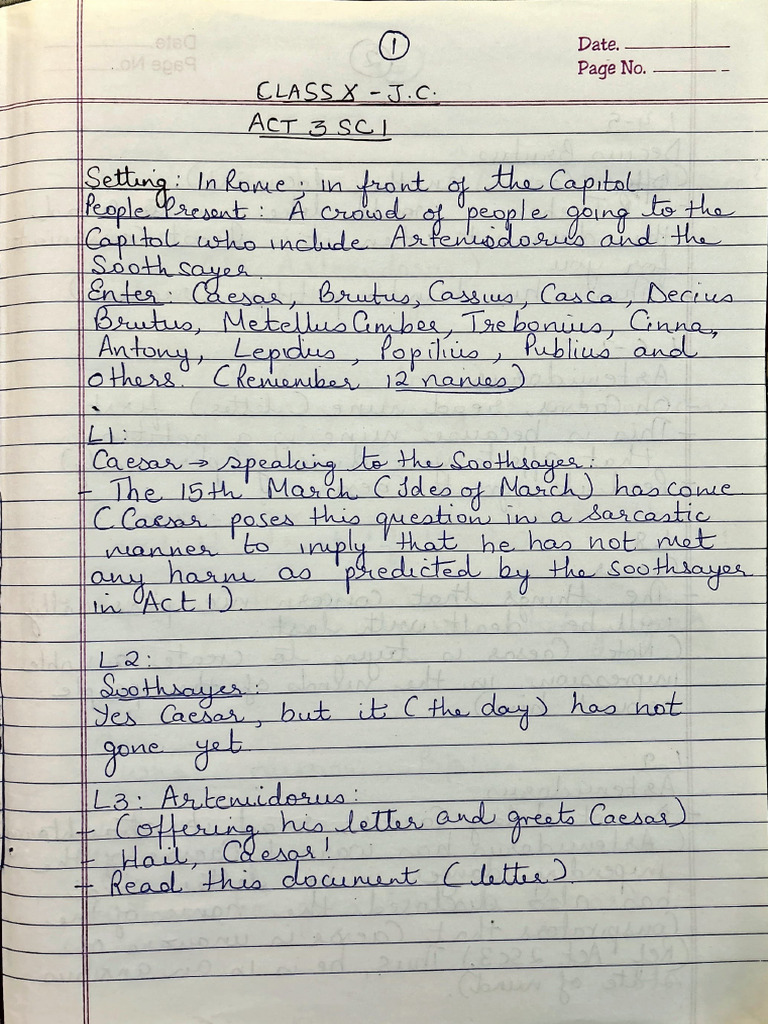 1
Date.
Page No.
CLASS X - J.C.
ACT 3 SC 1
Setting: In Rome; in front of the Capitol
People Present: A crowd of people going to the
Capitol who include Artemiodorus and the
Soothsayer.
Enter: Caesar, Brutus, Cassius, Casca, Decius
Brutus, Metellus Cimber, Trebonius, Cinna,
Antony, Lepidus, Popilius, Publius and
others. (Remember 12 names)
L1:
Caesar → speaking to the Soothsayer:
- The 15th March (Ides of March) has come
(Caesar poses this question in a sarcastic
manner to imply that he has not met
any harm as predicted by the soothsayer
in Act 1).
L2:
Soothsayer:
Yes Caesar, but it (the day) has not
gone yet
L3: Artemidorus:
- (offering his letter and greets Caesar)
- Hail, Caesar!
- Read this document (letter).